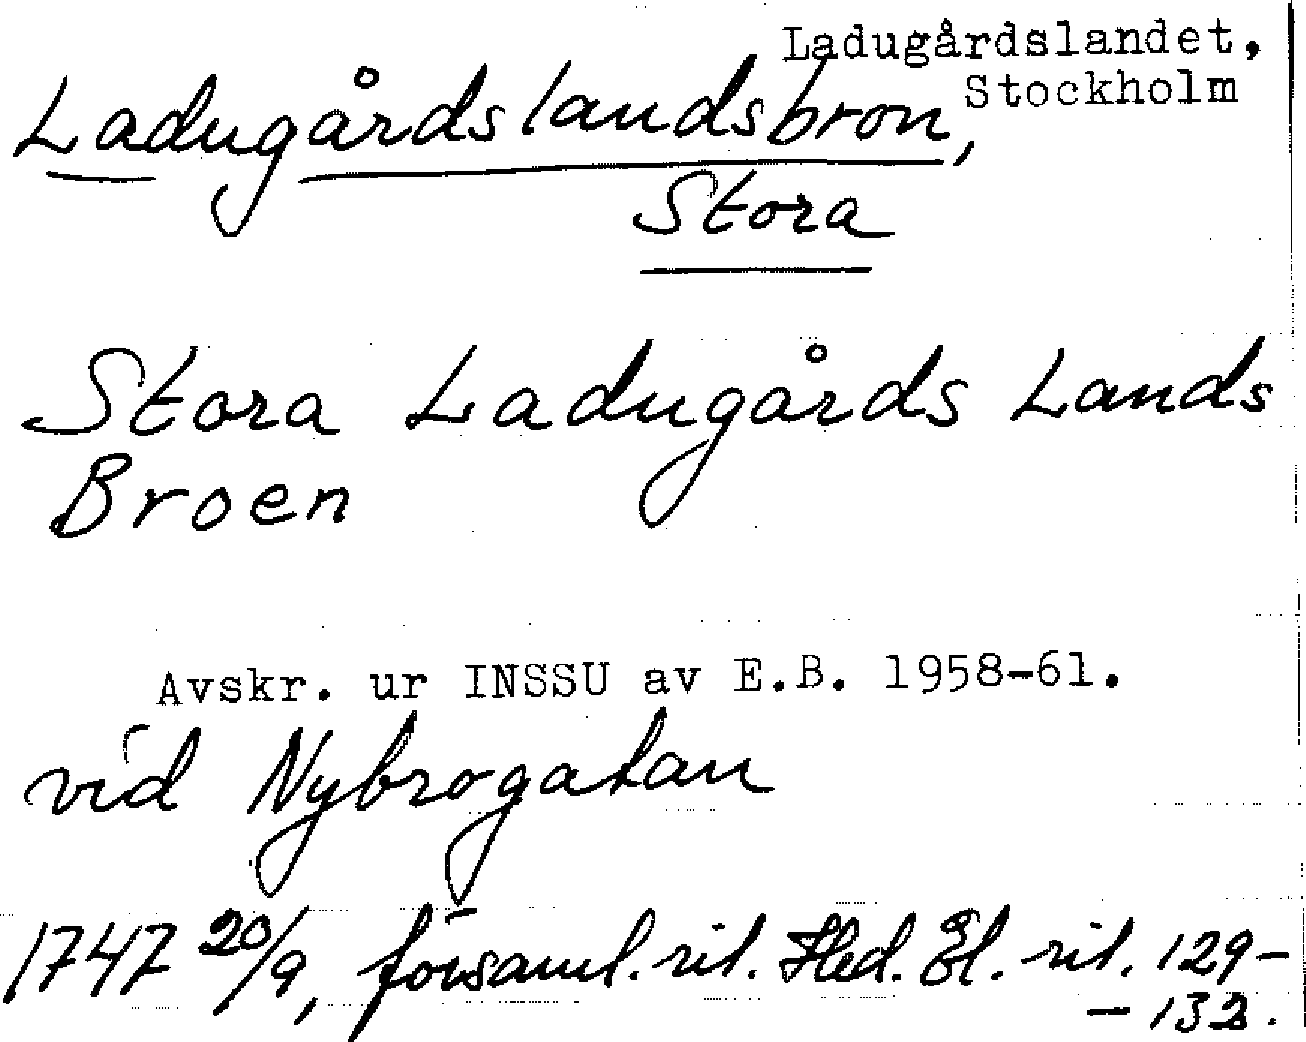 Ladugårdslandet,
Stockholm
Ladugårdslandsbron,
Stora
Stora Ladugårds Lands
Broen
Avskr. ur INSSU av E.B. 1958-61.
vid Nybrogatan
1747 20/9, församl. rit. Hed. El. rit. 129-
- 132.